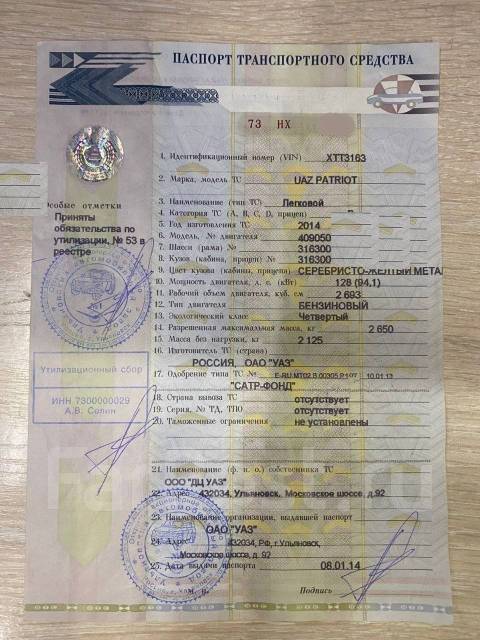 ПАСПОРТ ТРАНСПОРТНОГО СРЕДСТВА
73 НХ
1. Идентификационный номер (VIN) XTT3163
2. Марка, модель ТС UAZ PATRIOT
3. Наименование (тип ТС) Легковой
4. Категория ТС (А, В, С, D, прицеп)
5. Год изготовления ТС 2014
6. Модель, № двигателя 409050
7. Шасси (рама) № 316300
8. Кузов (кабина, прицеп) № 316300
9. Цвет кузова (кабины, прицепа) СЕРЕБРИСТО-ЖЕЛТЫЙ МЕТАЛ
10. Мощность двигателя, л. с. (кВт) 128 (94,1)
11. Рабочий объем двигателя, куб. см 2 693
12. Тип двигателя БЕНЗИНОВЫЙ
13. Экологический класс Четвертый
14. Разрешенная максимальная масса, кг 2 650
15. Масса без нагрузки, кг 2 125
16. Изготовитель ТС (страна)
РОССИЯ, ОАО "УАЗ"
17. Одобрение типа ТС № E-RU.MT02.B.00305.P1 от 10.01.13
"САТР-ФОНД"
18. Страна вывоза ТС отсутствует
19. Серия, № ТД, ТПО отсутствует
20. Таможенные ограничения не установлены
21. Наименование (ф. и. о.) собственника ТС
ООО "ДЦ УАЗ"
22. Адрес 432034, Ульяновск, Московское шоссе, д.92
23. Наименование организации, выдавшей паспорт
ОАО "УАЗ"
24. Адрес 432034, РФ, г.Ульяновск,
Московское шоссе, д. 92
25. Дата выдачи паспорта 08.01.14
М. П. Подпись
Особые отметки
Приняты
обязательства по
утилизации, № 53 в
реестре
Утилизационный сбор
ИНН 7300000029
А.В. Солин